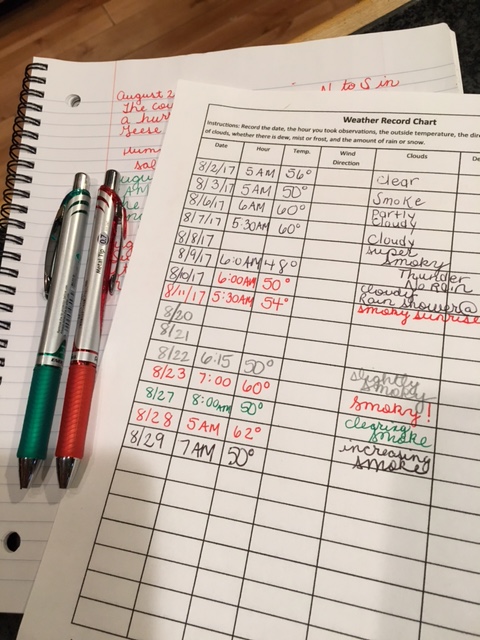 N to S in
August 2
The cou
a hur
Geese
Hum
sal
Metal Tip 07
Weather Record Chart
Instructions: Record the date, the hour you took observations, the outside temperature, the dire
of clouds, whether there is dew, mist or frost, and the amount of rain or snow.
Date Hour Temp. Wind Direction Clouds De
8/2/17 5AM 56° Clear
8/3/17 5AM 50° Smoke
8/6/17 6AM 60° Partly Cloudy
8/7/17 5:30AM 60° Cloudy
8/8/17 super smoky
8/9/17 6:00AM 48° Thunder No Rain
8/10/17 6:00AM 50° cloudy Rain shower@
8/11/17 5:30AM 54° smoky sunrise
8/20
8/21
8/22 6:15 50° slightly smoky
8/23 7:00 60° smoky!
8/27 8:00AM 50° clearing smoke
8/28 5AM 62°
8/29 7AM 50° increasing smoke